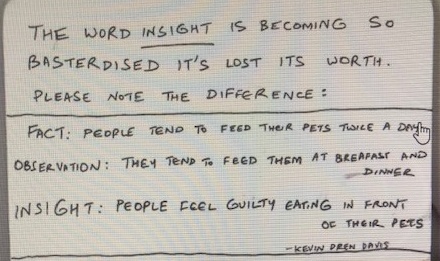 THE WORD INSIGHT IS BECOMING SO
BASTERDISED IT'S LOST ITS WORTH.
PLEASE NOTE THE DIFFERENCE:
FACT: PEOPLE TEND TO FEED THEIR PETS TWICE A DAY
OBSERVATION: THEY TEND TO FEED THEM AT BREAFAST AND
DINNER
INSIGHT: PEOPLE FEEL GUILTY EATING IN FRONT
OF THEIR PETS
-KEVIN DREN DAVIS